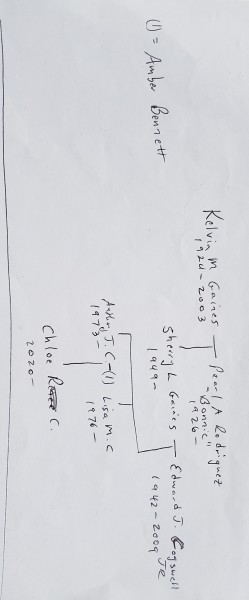 (1) = Amber Bennett
Kelvin M Gaines — Pearl A Rodriguez
1924-2003
"Bonnie"
1926-
Sherry L Gaines — Edward J. Cogswell
1949-
1942-2009 JR
Anthony J. C —(1) Lisa M. C
1973-
1976-
Chloe C.
2020-